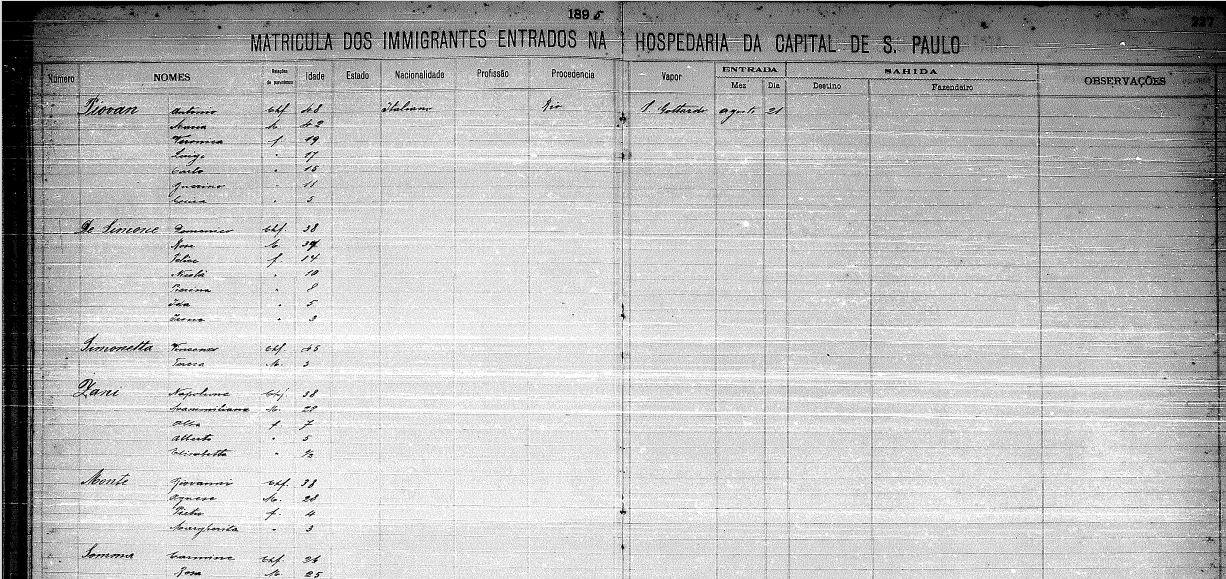 1895
227
MATRICULA DOS IMMIGRANTES ENTRADOS NA HOSPEDARIA DA CAPITAL DE S. PAULO
Número NOMES Relações de parentesco Idade Estado Nacionalidade Profissão Procedencia Vapor ENTRADA Mez Dia SAHIDA Destino Fazendeiro OBSERVAÇÕES
Piovan Antonio Chf. 48 Italiano Rio S. Gottardo agosto 21
Maria M. 42
Veronica f. 19
Luigi " 17
Carlo " 15
Guerino " 11
" 5
De Simone Domenico Chf. 38
Rosa M. 34
Felice f. 14
Nicola " 10
Pierina " 8
Ida " 5
" 3
Simonetta Vincenzo Chf. 45
Teresa M. 3
Zani Napoleone Chf. 38
Massimiliana M. 28
Alba f. 7
Alberto " 5
Elisabetta " ½
Monte Giovanni Chf. 38
Agnese M. 28
Pietro f. 4
Margherita " 3
Somma Carmine Chf. 26
Rosa M. 25